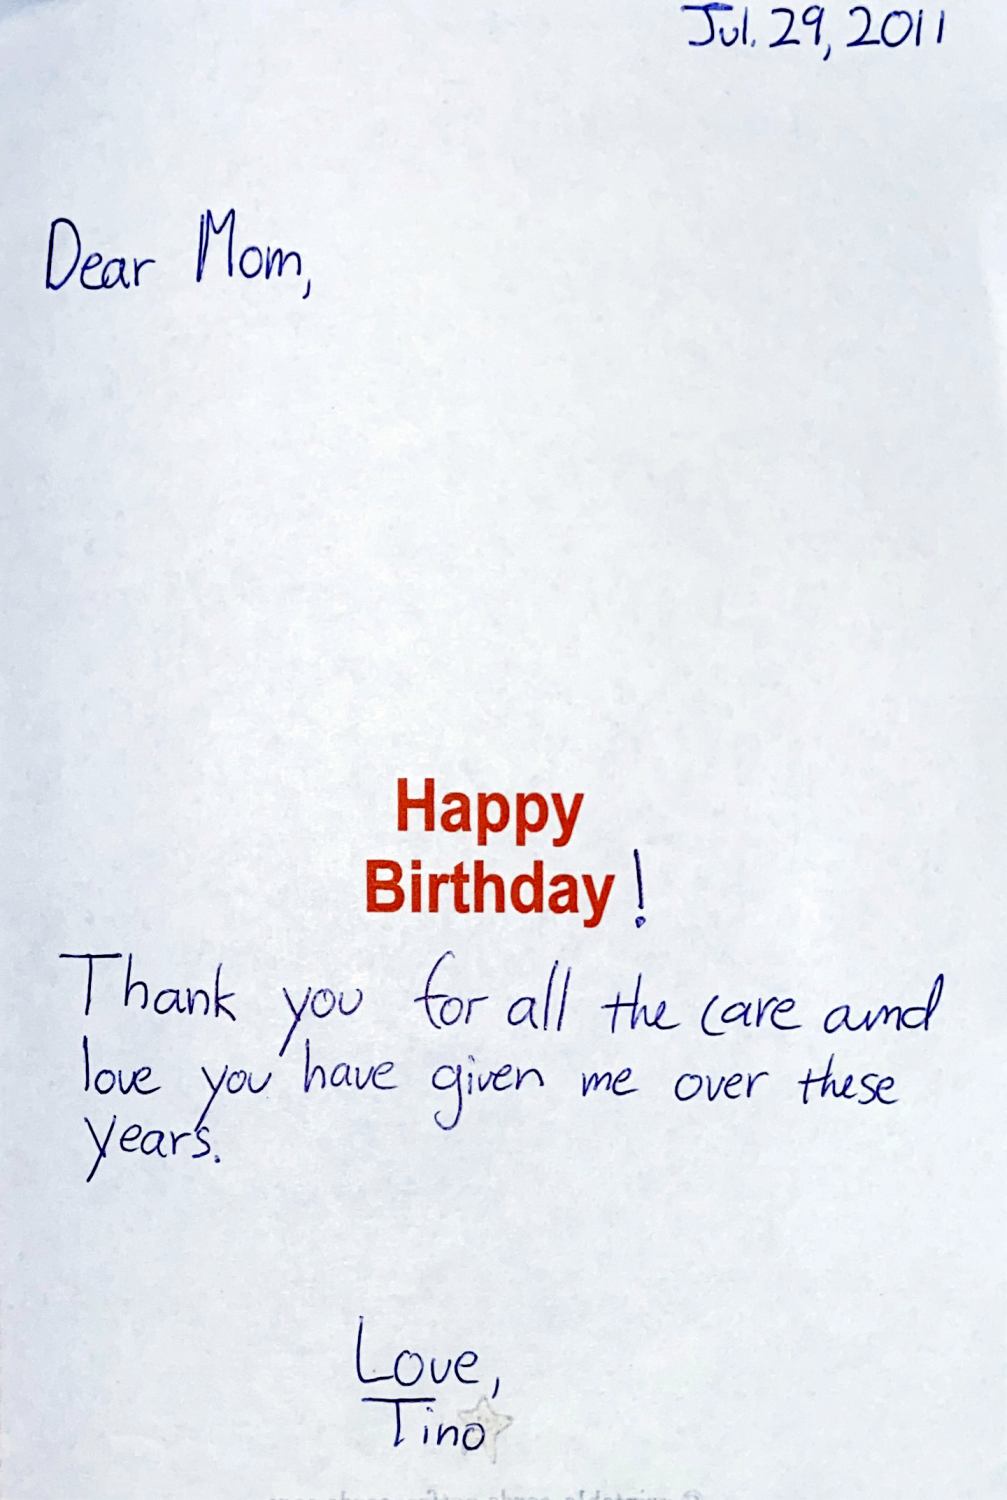 Jul. 29, 2011
Dear Mom,
Happy
Birthday!
Thank you for all the care amd
love you have given me over these
years.
Love,
Tino